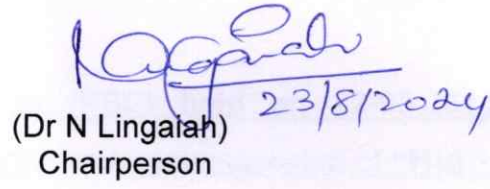 23/8/2024
(Dr N Lingaiah)
Chairperson